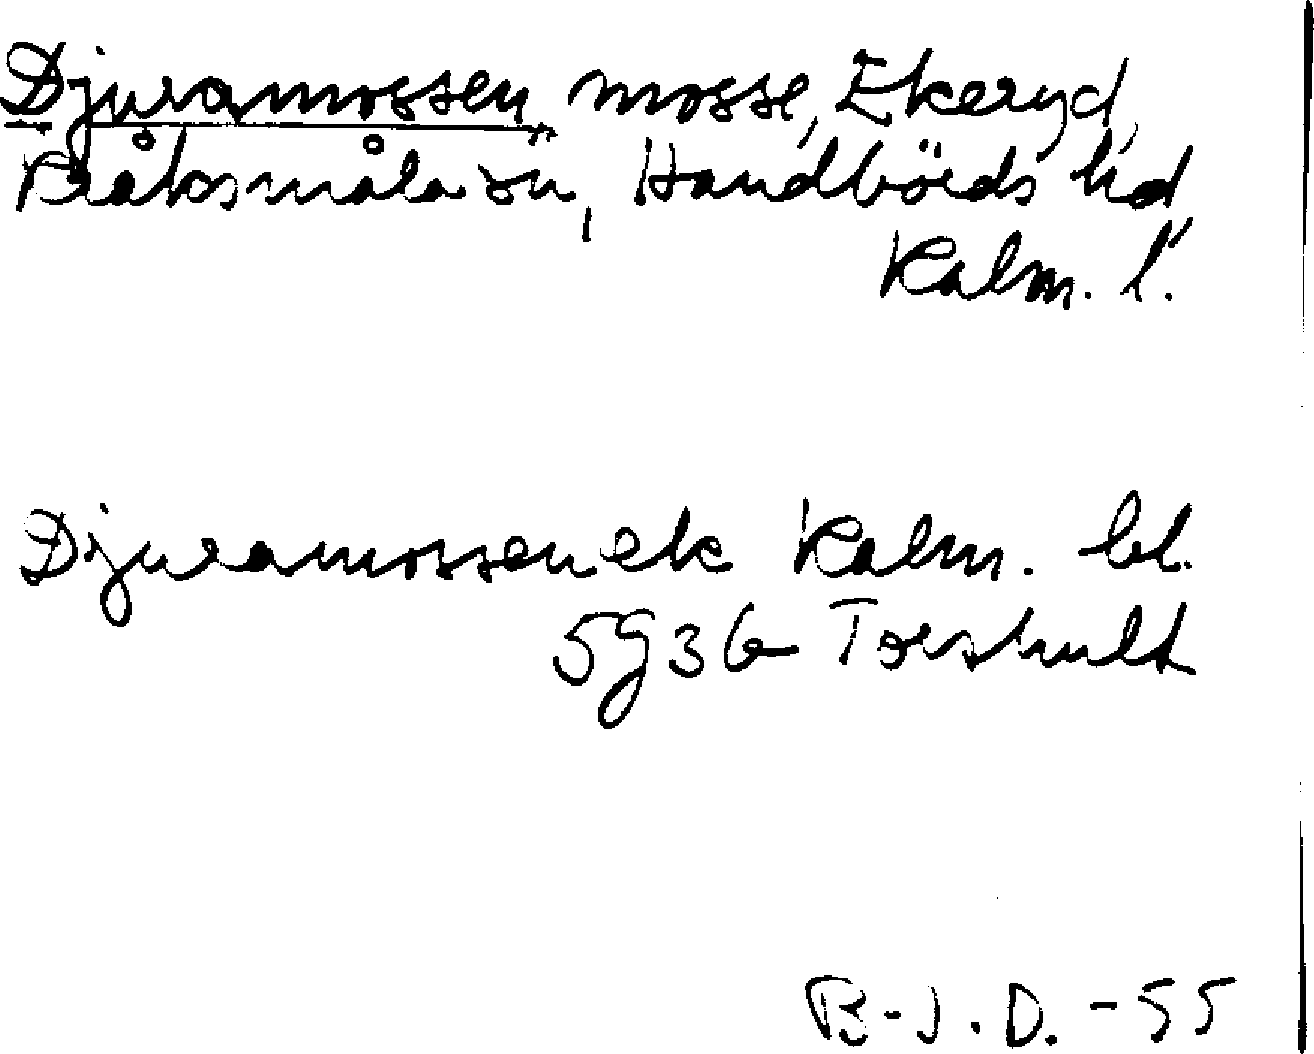 Djuramossen, mosse, Ekeryd,
Bråksmåla sn, Handbörds hd
Kalm. l.
Djuramossen ek Kalm. bl.
5G 3b Torshult
B-J.D. -55